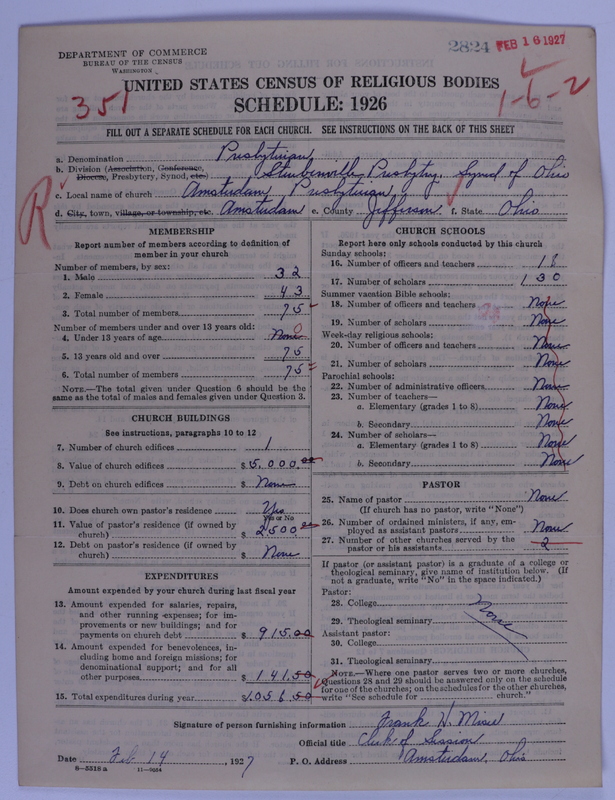 2824 FEB 16 1927
DEPARTMENT OF COMMERCE
BUREAU OF THE CENSUS
WASHINGTON
351
UNITED STATES CENSUS OF RELIGIOUS BODIES
SCHEDULE: 1926
1-6-2
FILL OUT A SEPARATE SCHEDULE FOR EACH CHURCH. SEE INSTRUCTIONS ON THE BACK OF THIS SHEET
R
a. Denomination Presbyterian
b. Division (Association, Conference, Diocese, Presbytery, Synod, etc.) Steubenville Presbytry. Synod of Ohio
c. Local name of church Amsterdam Presbyterian
d. City, town, village, or township, etc. Amsterdam e. County Jefferson f. State Ohio
MEMBERSHIP
Report number of members according to definition of
member in your church
Number of members, by sex:
1. Male 32
2. Female 43
3. Total number of members 75
Number of members under and over 13 years old:
4. Under 13 years of age None 0
5. 13 years old and over 75
6. Total number of members 75
NOTE.—The total given under Question 6 should be the
same as the total of males and females given under Question 3.
CHURCH BUILDINGS
See instructions, paragraphs 10 to 12
7. Number of church edifices 1
8. Value of church edifices $ 5,000.00
9. Debt on church edifices $ None
10. Does church own pastor's residence Yes
Yes or No
11. Value of pastor's residence (if owned by
church) $ 2500.00
12. Debt on pastor's residence (if owned by
church) $ None
EXPENDITURES
Amount expended by your church during last fiscal year
13. Amount expended for salaries, repairs,
and other running expenses; for im-
provements or new buildings; and for
payments on church debt $ 915.00
14. Amount expended for benevolences, in-
cluding home and foreign missions; for
denominational support; and for all
other purposes $ 141.50
15. Total expenditures during year $ 1,056.50
CHURCH SCHOOLS
Report here only schools conducted by this church
Sunday schools:
16. Number of officers and teachers 18
17. Number of scholars 130
Summer vacation Bible schools:
18. Number of officers and teachers None
19. Number of scholars None
Week-day religious schools:
20. Number of officers and teachers None
21. Number of scholars None
Parochial schools:
22. Number of administrative officers None
23. Number of teachers—
a. Elementary (grades 1 to 8) None
b. Secondary None
24. Number of scholars—
a. Elementary (grades 1 to 8) None
b. Secondary None
PASTOR
25. Name of pastor None
(If church has no pastor, write "None")
26. Number of ordained ministers, if any, em-
ployed as assistant pastors None
27. Number of other churches served by the
pastor or his assistants 2
If pastor (or assistant pastor) is a graduate of a college or
theological seminary, give name of institution below. (If
not a graduate, write "No" in the space indicated.)
Pastor:
28. College None
29. Theological seminary
Assistant pastor:
30. College
31. Theological seminary
NOTE.—Where one pastor serves two or more churches,
Questions 28 and 29 should be answered only on the schedule
for one of the churches; on the schedules for the other churches,
write "See schedule for church."
Signature of person furnishing information Frank W.
Official title Clerk of Session
Date Feb 14, 1927 P. O. Address Amsterdam, Ohio
8—5518 a 11—9664